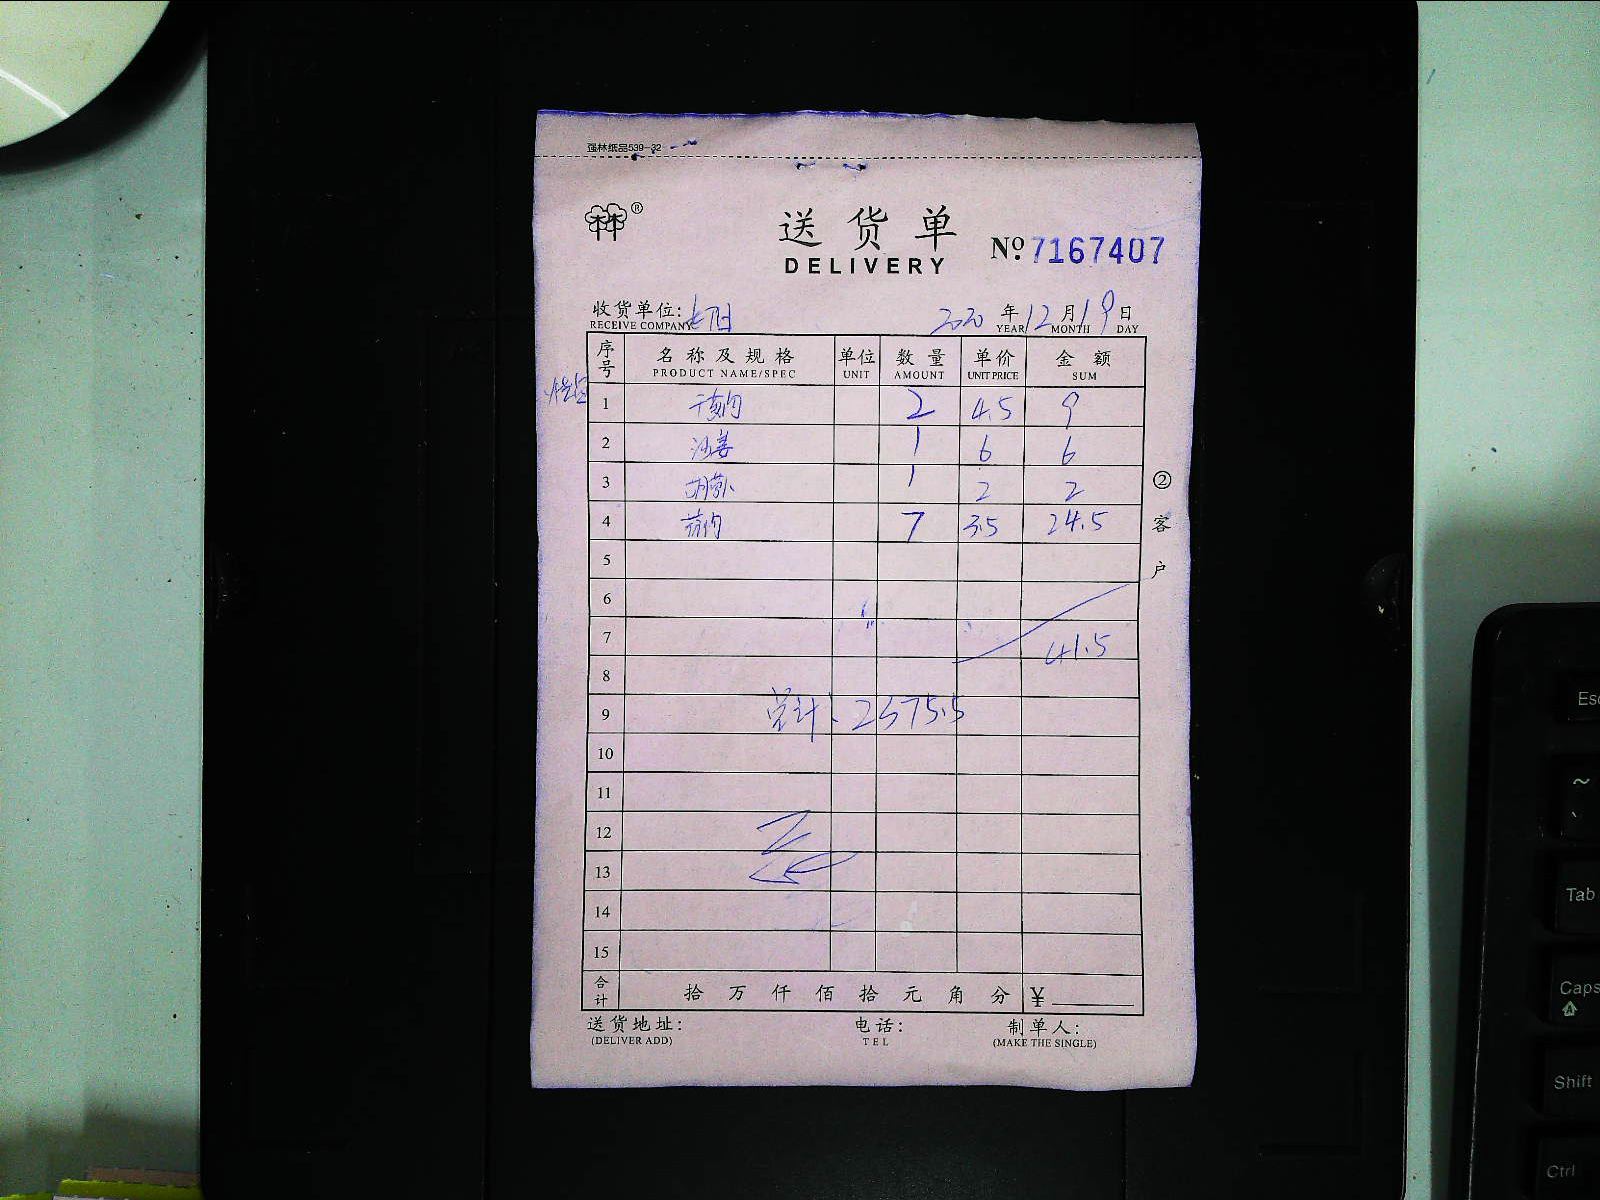 强林纸品539-32
林®
送货单
DELIVERY
№ 7167407
收货单位:
RECEIVE COMPANY
2020 年 12 月 19 日
YEAR MONTH DAY
序号 名称及规格 单位 数量 单价 金额
PRODUCT NAME/SPEC UNIT AMOUNT UNIT PRICE SUM
1 2 4.5 9
2 1 6 6
3 1 2 2
4 7 3.5 24.5
5
6
7 41.5
8
9 总计: 2375.5
10
11
12
13
14
15
合计 拾 万 仟 佰 拾 元 角 分 ¥
②客户
送货地址: 电话: 制单人:
(DELIVER ADD) TEL (MAKE THE SINGLE)
Esc
~
Tab
Caps
Shift
Ctrl